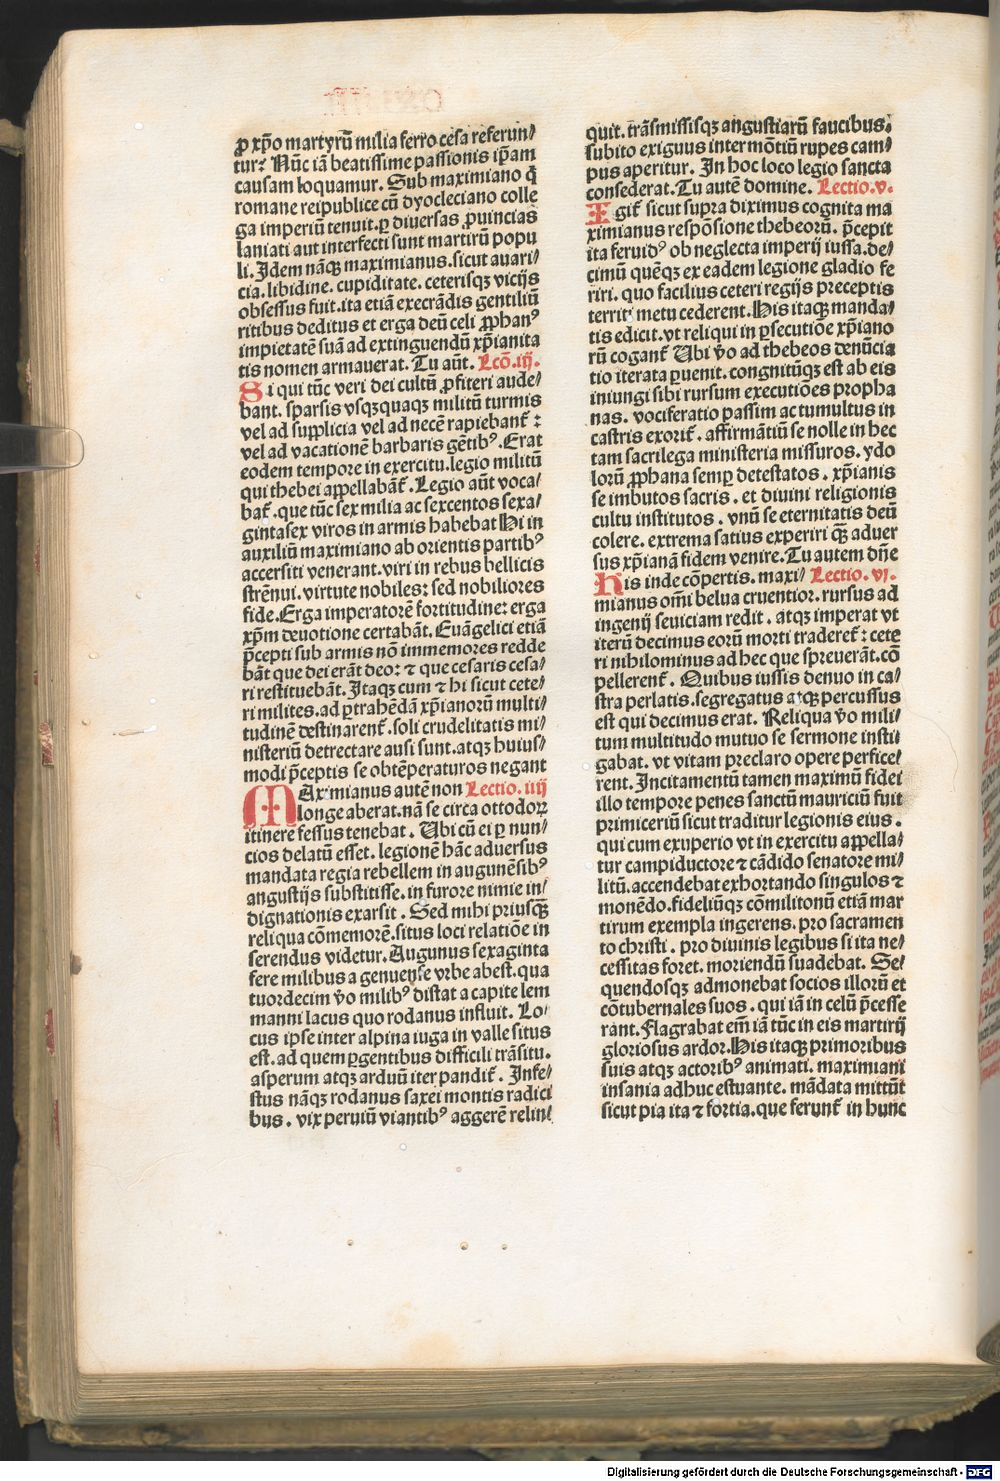 ꝓ xp̄o martyrū milia ferro cesa referun⸗
tur? Nūc iā beatissime passionis ip̄am
causam loquamur. Sub maximiano q̄
romane reipublice cū dyocleciano colle
ga imperiū tenuit. ꝑ diuersas ꝓuincias
laniati aut interfecti sunt martirū popu
li. Idem nāqꝫ maximianus. sicut auari⸗
cia. libidine. cupiditate. ceterisqꝫ vicijs
obsessus fuit. ita etiā execrādis gentiliū
ritibus deditus et erga deū celi ꝓphanꝰ
impietatē suā ad extinguendū xp̄ianita
tis nomen armauerat. Tu aūt. Lcō. iij.
Si qui tūc veri dei cultū ꝓfiteri aude⸗
bant. sparsis vsqꝫquaqꝫ militū turmis
vel ad supplicia vel ad necē rapiebant᷑ :
vel ad vacationē barbaris gētibꝰ. Erat
eodem tempore in exercitu. legio militū
qui thebei appellabāt᷑. Legio aūt voca⸗
bat᷑. que tūc sex milia ac sexcentos sexa⸗
gintasex viros in armis habebat Hi in
auxiliū maximiano ab orientis partibꝰ
accersiti venerant. viri in rebus bellicis
strēnui. virtute nobiles: sed nobiliores
fide. Erga imperatorē fortitudine: erga
xp̄m deuotione certabāt. Euāgelici etiā
p̄cepti sub armis nō immemores redde
bāt que dei erāt deo: ⁊ que cesaris cesa⸗
ri restituebāt. Itaqꝫ cum ⁊ hi sicut cete⸗
ri milites. ad ꝑtrahēdā xp̄ianorū multi⸗
tudinē destinarent᷑. soli crudelitatis mi⸗
nisteriū detrectare ausi sunt. atqꝫ huius⸗
modi p̄ceptis se obtēperaturos negant
Maximianus autē non Lectio. iiij
longe aberat. nā se circa ottodoꝝ
itinere fessus tenebat. Ubi cū ei ꝑ nun⸗
cios delatū esset. legionē hāc aduersus
mandata regia rebellem in augunēsibꝰ
angustijs substitisse. in furore nimie in⸗
dignationis exarsit. Sed mihi priusqꝫ̄
reliqua cōmemorē. situs loci relatiōe in
serendus videtur. Augunus sexaginta
fere milibus a genuense vrbe abest. qua
tuordecim v̄o milibꝰ distat a capite lem
manni lacus quo rodanus influit. Lo⸗
cus ipse inter alpina iuga in valle situs
est. ad quem ꝑgentibus difficili trāsitu.
asperum atqꝫ arduū iter pandit᷑. Infe⸗
stus nāqꝫ rodanus saxei montis radici
bus. vix peruiū viantibꝰ aggerē relin⸗
quit. trāsmissisqꝫ angustiarū faucibus.
subito exiguus inter mōtiū rupes cam⸗
pus aperitur. In hoc loco legio sancta
consederat. Tu autē domine. Lectio. v.
Igit᷑ sicut supra diximus cognita ma
ximianus respōsione thebeorū. p̄cepit
ita feruidꝰ ob neglecta imperij iussa. de⸗
cimū quēqꝫ ex eadem legione gladio fe
riri. quo facilius ceteri regijs preceptis
territi metu cederent. His itaqꝫ manda⸗
tis edicit. vt reliqui in ꝑsecutiōe xp̄iano
rū cogant᷑ Ubi v̄o ad thebeos denūcia
tio iterata ꝑuenit. congnitūqꝫ est ab eis
iniungi sibi rursum executiōes propha
nas. vociferatio passim ac tumultus in
castris exorit᷑. affirmātiū se nolle in hec
tam sacrilega ministeria missuros. ydo
lorū ꝓphana semꝑ detestatos. xp̄ianis
se imbutos sacris. et diuini religionis
cultu institutos. vnū se eternitatis deū
colere. extrema satius experiri qꝫ̄ aduer
sus xp̄ianā fidem venire. Tu autem dn̄e
His inde cōpertis. maxi⸗ Lectio. vi.
mianus om̄i belua cruentior. rursus ad
ingenij seuiciam redit. atqꝫ imperat vt
iterū decimus eorū morti traderet᷑: cete
ri nihilominus ad hec que spreuerāt. cō
pellerent᷑. Quibus iussis denuo in ca⸗
stra perlatis. segregatus atqꝫ percussus
est qui decimus erat. Reliqua v̄o mili⸗
tum multitudo mutuo se sermone insti⸗
gabat. vt vitam preclaro opere perfice⸗
rent. Incitamentū tamen maximū fidei
illo tempore penes sanctū mauriciū fuit
primiceriū sicut traditur legionis eius.
qui cum exuperio vt in exercitu appella⸗
tur campiductore ⁊ cādido senatore mi⸗
litū. accendebat exhortando singulos ⁊
monēdo. fideliūqꝫ cōmilitonū etiā mar
tirum exempla ingerens. pro sacramen
to christi. pro diuinis legibus si ita ne⸗
cessitas foret. moriendū suadebat. Se⸗
quendosqꝫ admonebat socios illorū et
cōtubernales suos. qui iā in celū p̄cesse
rant. Flagrabat em̄ iā tūc in eis martirij
gloriosus ardor. His itaqꝫ primoribus
suis atqꝫ actoribꝰ animati. maximiani
insania adhuc estuante. mādata mittūt
sicut pia ita ⁊ fortia. que ferunt᷑ in hunc
Digitalisierung gefördert durch die Deutsche Forschungsgemeinschaft - DFG